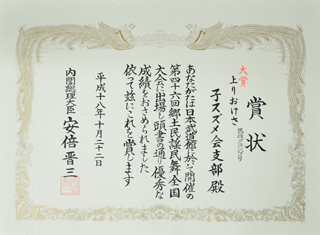 賞状
大賞
上りおけさ
子スズメ会支部 殿
あなたがたは日本武道館に於て開催の
第四十六回郷土民謡民舞全国
大会に出場し頭書の通り優秀な
成績をおさめられました
依って茲にこれを賞します
平成十八年十月二十二日
内閣総理大臣 安倍晋三